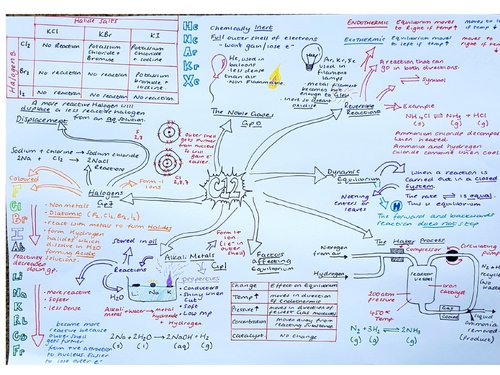 Halide Salts
KCl KBr KI
Halogens
Cl₂ No Reaction Potassium Chloride + Bromine Potassium Chloride + Iodine
Br₂ No reaction No reaction Potassium Bromide + Iodine
I₂ No reaction No reaction No Reaction
A more reactive Halogen will
displace a less reactive halogen
from an aq solution
Displacement
Sodium + chlorine → Sodium chloride
2Na + Cl₂ → 2NaCl
Reactions
Coloured
F
Cl
Br
I
At
Halogens
Gp7
- Non metals
- Diatomic (F₂, Cl₂, Br₂, I₂)
- react with metal to form Halides
- form Hydrogen
halides which
dissolve in H₂O
forming Acidic
Solutions
Reactivity decreases
down gp
Li
Na
K
Rb
Cs
Fr
- more reactive
- Softer
- less Dense
become more
reactive because
outer shell
gets further
from +ve attraction
to nucleus. Easier
to lose outer e⁻
He
Ne
Ar
Kr
Xe
Chemically Inert
Full outer shell of electrons
- won't gain/lose e⁻
He, used in
balloons
- less dense
than air
- Non Flammable
Ar, Kr, Xe
used in
filament
lamps
- metal filament
becomes hot
enough to Glow
- inert so Doesnt
oxidise
The Noble Gases
Gp0
C12
outer shell
gets further
from nucleus
Form 1-
ions
Stored in oil
Reactions
H₂O
Li Na K
Alkali Metals
Gp1
Form 1+
ion
(1e⁻ in outer
shell)
properties
- Conduct
- Shiny when
Cut
- Soft
- Low MP
Alkali metal + water → metal hydroxide
+ Hydrogen
2Na + 2H₂O → 2NaOH + H₂
(s) (l) (aq) (g)
ENDOTHERMIC
EXOTHERMIC
Equilibrium moves
to Right if temp ↑
Equilibrium moves
to left if temp ↑
Reversible
Reactions
A reaction that can
go in both directions.
⇌ Symbol
Example
NH₄Cl ⇌ NH₃ + HCl
(s) (g) (g)
Ammonium chloride decomposes
when heated
Ammonia and hydrogen
chloride combine when cool
Dynamic
Equilibrium
Nothing
enters or
leaves
When a reaction is
carried out in a closed
System.
The rate is equal.
This is equilibrium
The forward and backwards
reaction does not stop
Factors
affecting
Equilibrium
Change Effect on Equilibrium
Temp ↑ moves in direction of Endothermic
Pressure ↑ moves in direction of fewest Gas molecules
Concentration moves away from reacting substance
Catalyst No change
The Haber Process
Nitrogen from air
Hydrogen
Compressor
Circulating
pump
200 atm
pressure
450°C
Temp
reactor
vessel
iron
catalyst
Gas
Cooled
liquid
Ammonia
removed
(Product)
N₂ + 3H₂ ⇌ 2NH₃
(g) (g) (g)